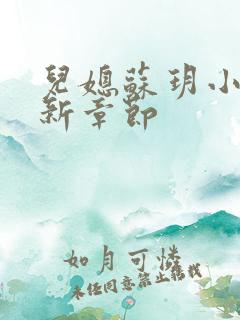 兒媳蘇玥小
新章節
如月可憐
未经同意禁止转载